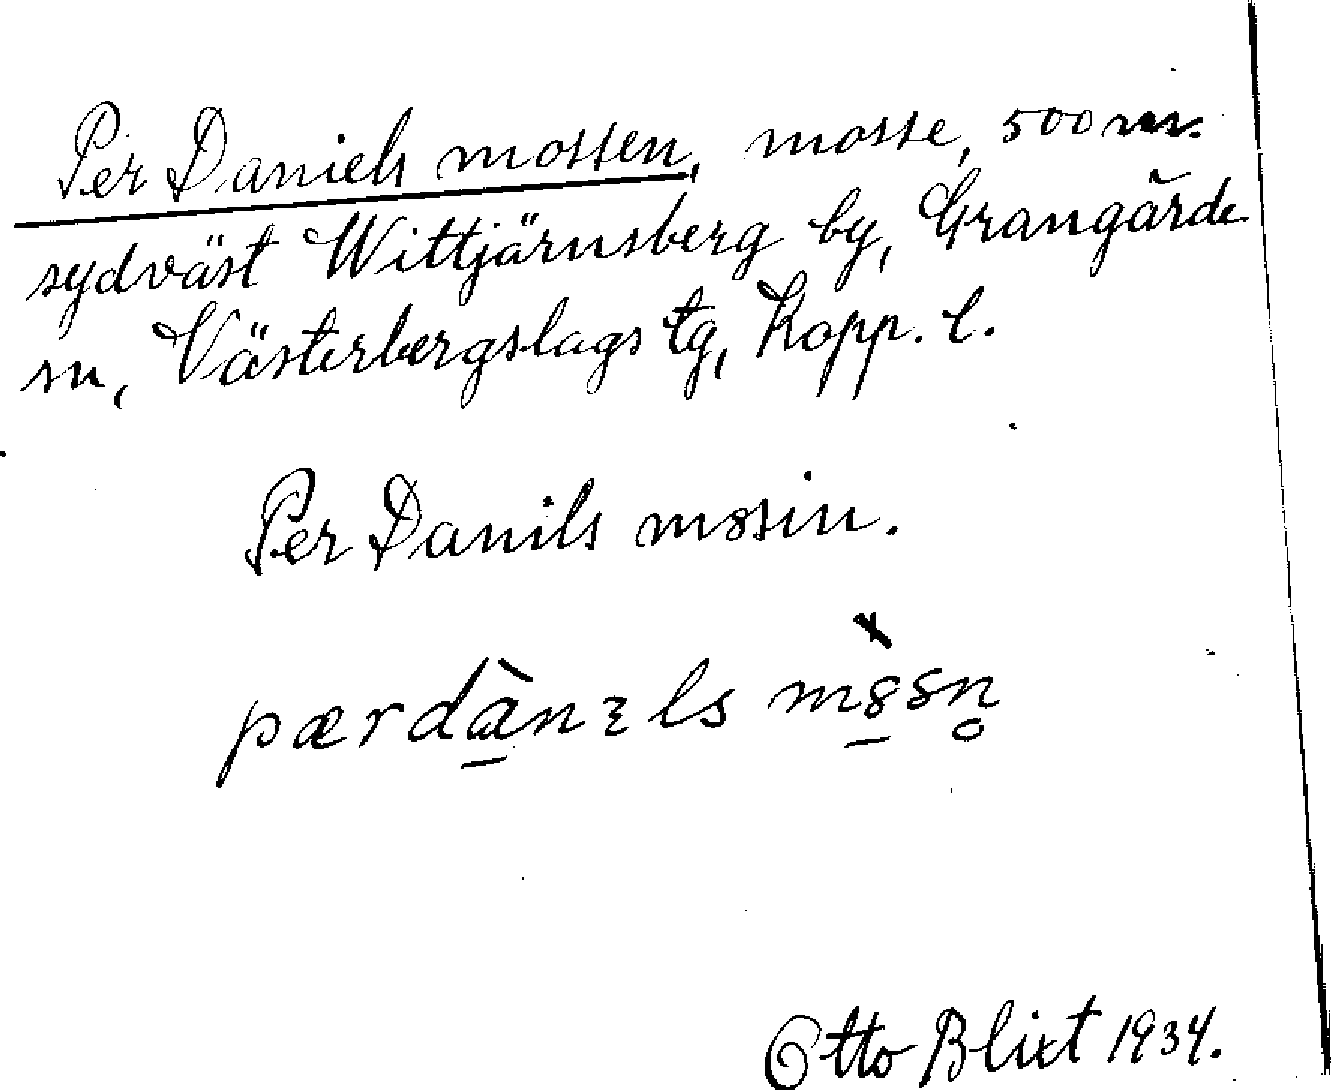 Per Daniels mossen, mosse, 500 m.
sydväst Wittjärnsberg by, Grangärde
sn, Västerbergslags tg, Kopp. l.
Per Danils m8sin.
pærdànɿls m8̀sn̥
Otto Blixt 1934.